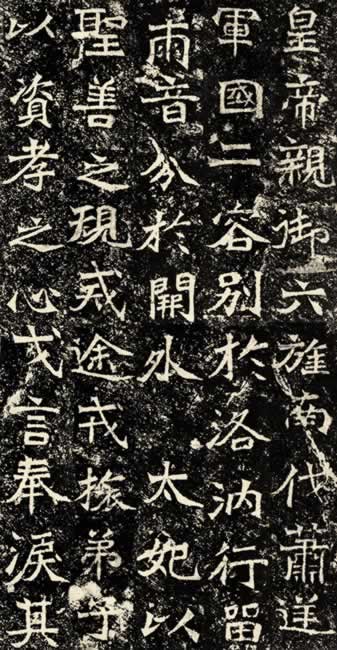 皇帝親御六旌南伐蕭逆
軍國二容別於洛汭行留
兩音分於闕外 太妃以
聖善之規戒途戎旅弟子
以資孝之心戈言奉淚其